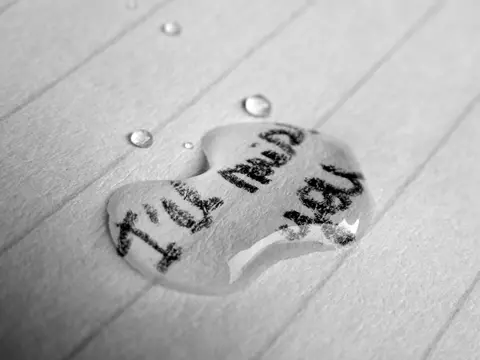 I'll miss
you